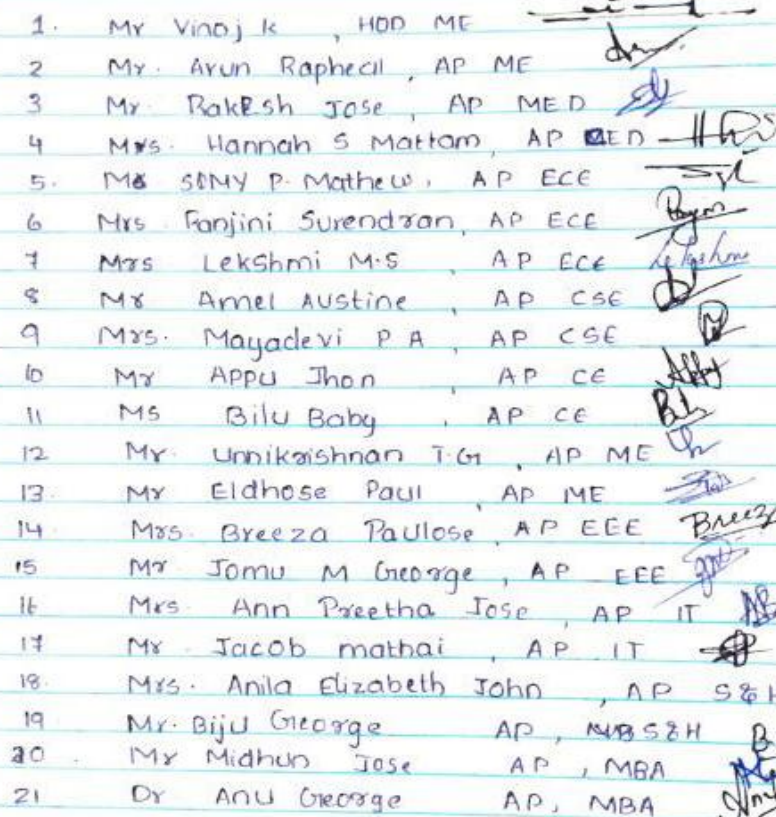 1. Mr Vinoj k , HOD ME
2 Mr. Arun Raphecil , AP ME
3 Mr. Rakesh Jose , AP MED
4 Mrs. Hannah S Mattam , AP MED
5. Ms SOMY P. Mathew , AP ECE
6 Mrs Ranjini Surendran , AP ECE
7 Mrs Lekshmi M.S , AP ECE Lekshmi
8 Mr Amel Austine , AP CSE
9 Mrs. Mayadevi P A , AP CSE
10 Mr Appu Jhon , AP CE
11 Ms Bilu Baby , AP CE
12 Mr. Unnikrishnan T.G , AP ME
13. Mr Eldhose Paul , AP ME
14 Mrs. Breeza Paulose , AP EEE Breeza
15 Mr Jomu M George , AP EEE
16 Mrs. Ann Preetha Jose , AP IT
17 Mr Jacob mathai , AP IT
18. Mrs. Anila Elizabeth John , AP S&H
19 Mr. Biju George AP , S&H
20. Mr Midhun Jose AP , MBA
21 Dr Anu George AP, MBA